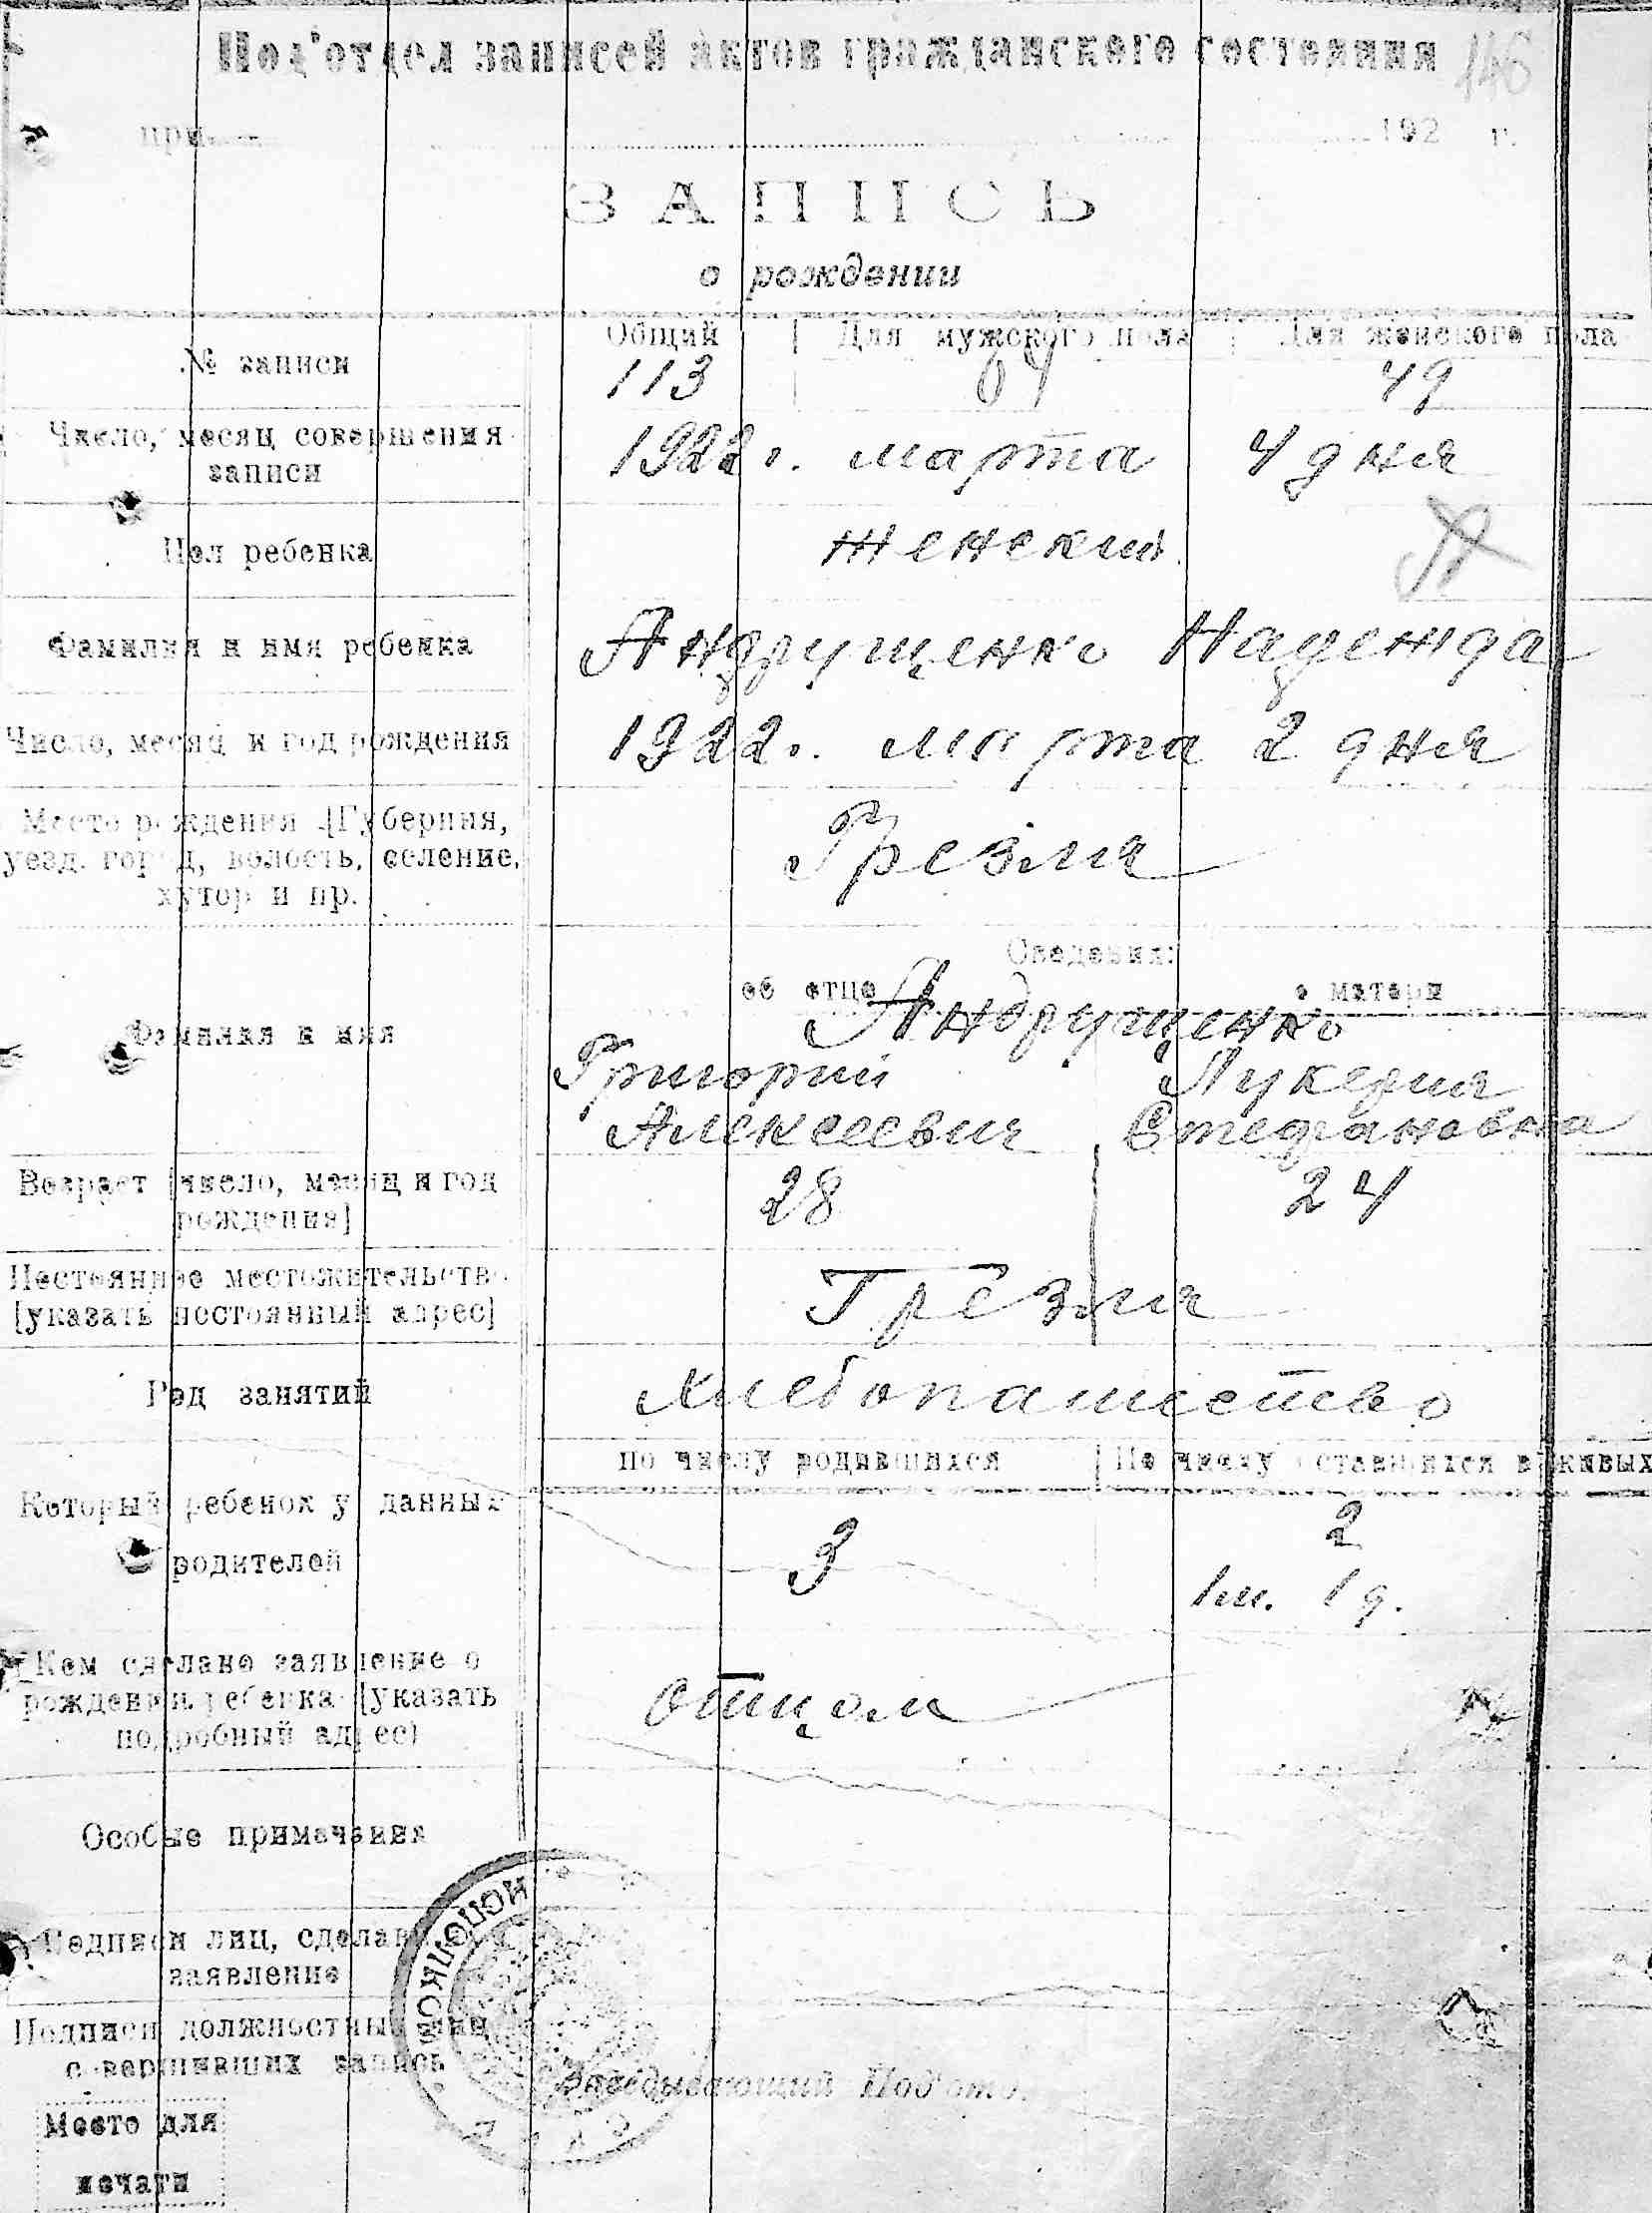 Под'отдел записей актов гражданского состояния 146
при 192 г.
ЗАПИСЬ
о рождении
Общий Для мужского пола Для женского пола
№ записи 113 64 49
Число, месяц совершения записи 1922 г. марта 4 дня
Пол ребенка женский
Фамилия и имя ребенка Андрущенко Надежда
Число, месяц и год рождения 1922 г. марта 2 дня
Место рождения [Губерния,
уезд, город, волость, селение, Грезля
хутор и пр.
Сведения:
об отце о матери
Фамилия и имя Андрущенко
Григорий Лукерия
Алексеевич Стефановна
Возраст [число, месяц и год рождения] 28 24
Постоянное местожительство
[указать постоянный адрес] Грезля
Род занятий хлебопашество
по числу родившихся По числу оставшихся в живых
Который ребенок у данных
родителей 3 2
1 м. 1 д.
Кем сделано заявление о
рождении ребенка [указать отцом
подробный адрес)
Особые примечания
Подписи лиц, сделавших
заявление
Подписи должностных лиц
совершивших запись
Заведывающий Под'отд.
Место для
печати